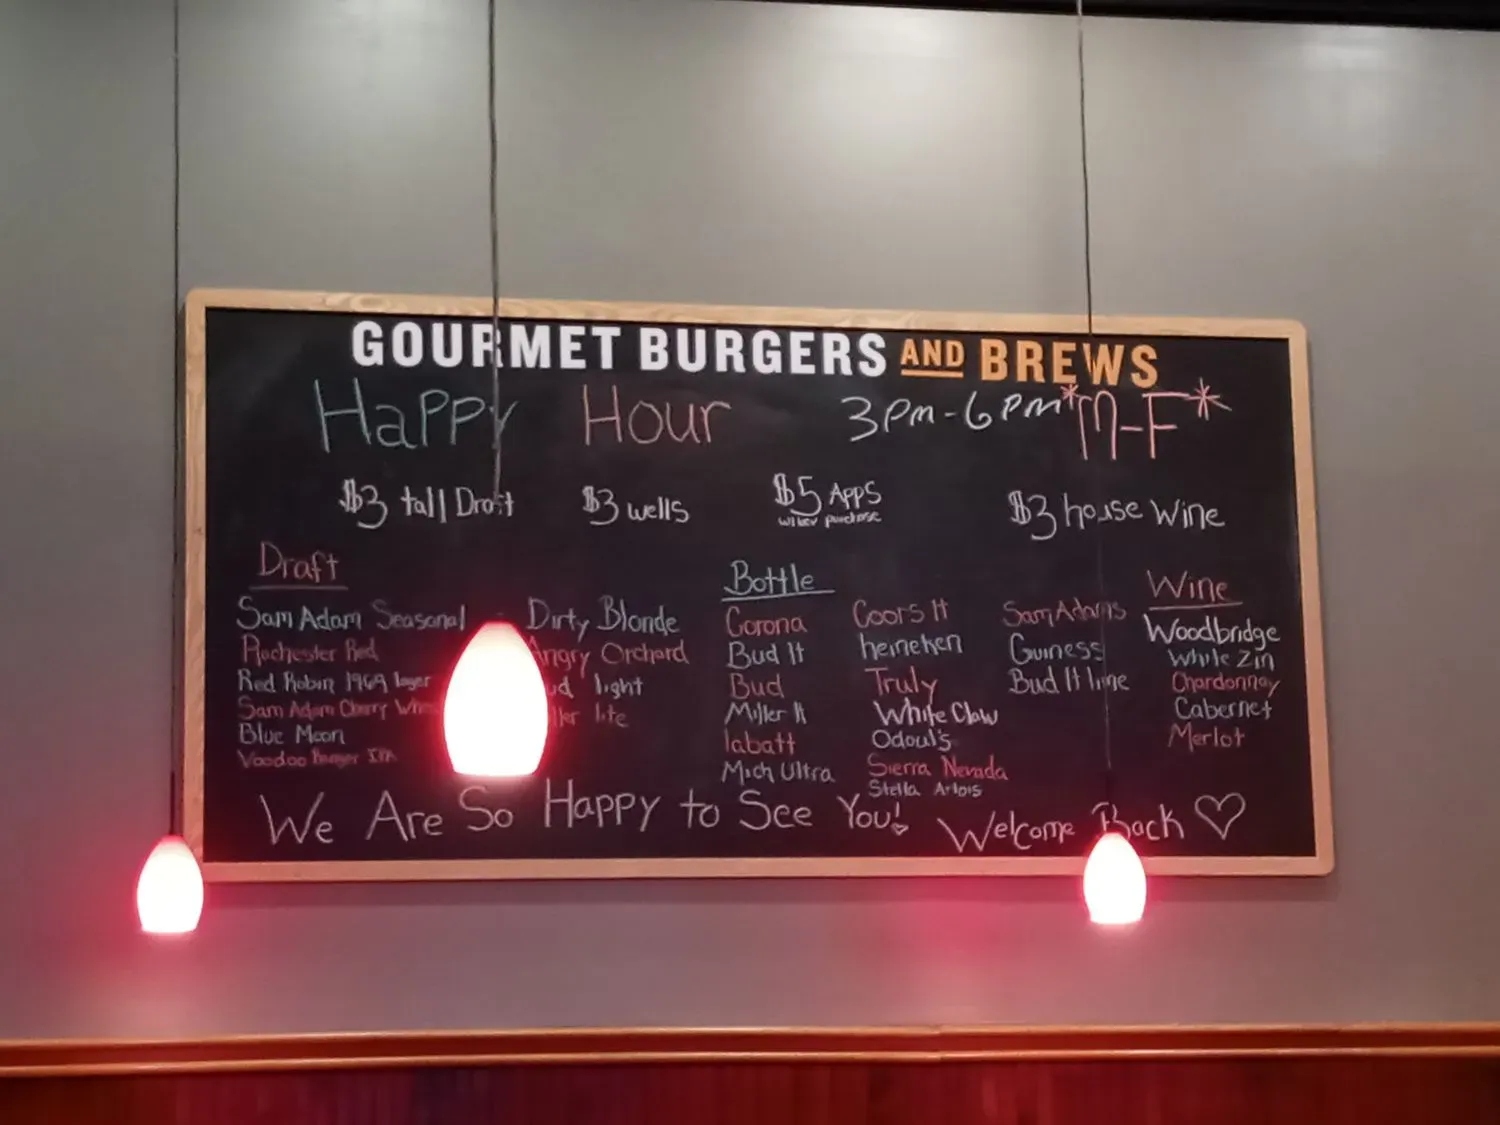 GOURMET BURGERS AND BREWS
Happy Hour 3pm-6pm *M-F*
$3 tall Draft $3 wells $5 Apps $3 house Wine
Draft
Sam Adam Seasonal
Rochester Red
Red Robin 1969 lager
Sam Adam Cherry
Blue Moon
Voodoo Ranger IPA
Dirty Blonde
Angry Orchard
light
lite
Bottle
Corona
Bud lt
Bud
Miller lt
labatt
Mich Ultra
Coors lt
heineken
Truly
White Claw
Odoul's
Sierra Nevada
Stella Artois
Sam Adams
Guiness
Bud lt lime
Wine
Woodbridge
White Zin
Chardonnay
Cabernet
Merlot
We Are So Happy to See You! Welcome Back